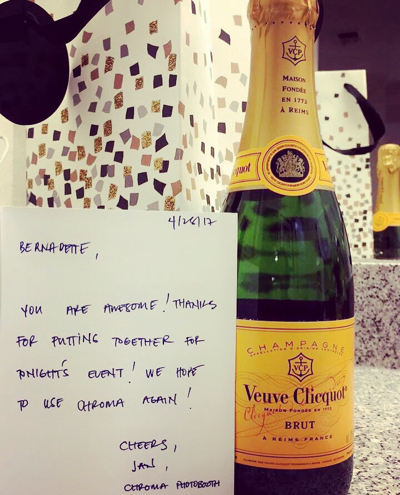 4/28/17
BERNADETTE,
YOU ARE AWESOME! THANKS
FOR PUTTING TOGETHER FOR
TONIGHT'S EVENT! WE HOPE
TO USE CHROMA AGAIN!
CHEERS,
CHROMA PHOTOBOOTH
VCP
MAISON
FONDÉE
EN 1772
À REIMS
quot
CHAMPAGNE
VCP
Veuve Clicquot
MAISON FONDÉE EN 1772
BRUT
À REIMS FRANCE